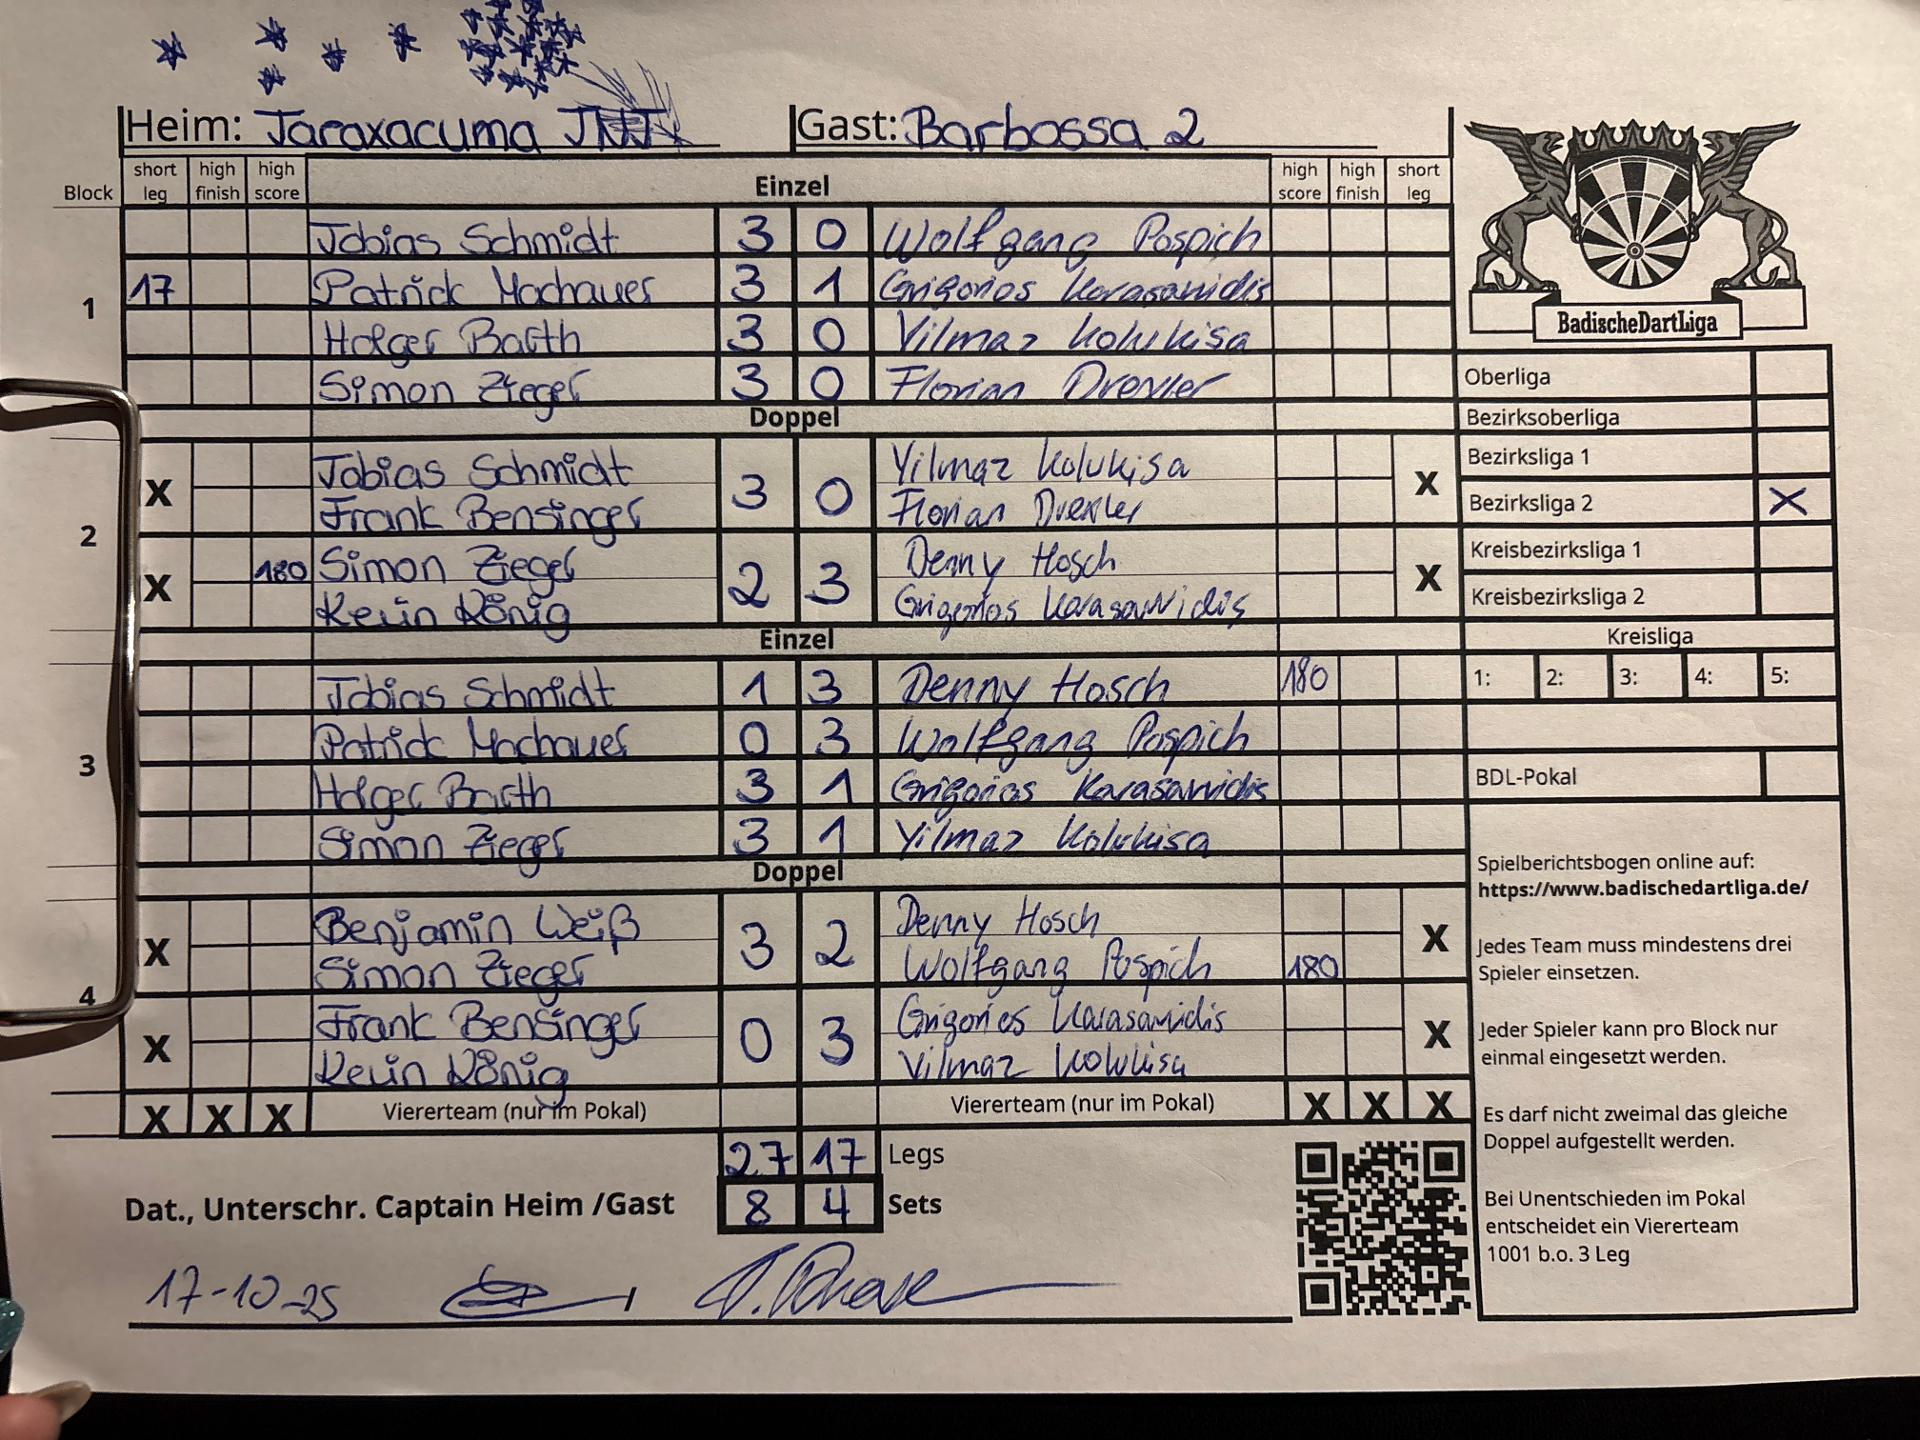 Heim: Taraxacuma
Gast: Barbossa 2
Block short leg high finish high score Einzel high score high finish short leg
1
Tobias Schmidt 3 0 Wolfgang Pospich
17 Patrick Machauer 3 1 Grigorios Karasavvidis
Holger Barth 3 0 Yilmaz Kolukisa
Simon Zieger 3 0 Florian Drexler
Doppel
2
X Tobias Schmidt 3 0 Yilmaz Kolukisa X
Frank Bensinger Florian Drexler
X 180 Simon Zieger 2 3 Denny Hosch X
Kevin König Grigorios Karasavvidis
Einzel
3
Tobias Schmidt 1 3 Denny Hosch 180
Patrick Machauer 0 3 Wolfgang Pospich
Holger Barth 3 1 Grigorios Karasavvidis
Simon Zieger 3 1 Yilmaz Kolukisa
Doppel
4
X Benjamin Weiß 3 2 Denny Hosch X
Simon Zieger Wolfgang Pospich 180
X Frank Bensinger 0 3 Grigorios Karasavvidis X
Kevin König Yilmaz Kolukisa
X X X Viererteam (nur im Pokal) Viererteam (nur im Pokal) X X X
27 17 Legs
Dat., Unterschr. Captain Heim /Gast 8 4 Sets
17-10-25
BadischeDartLiga
Oberliga
Bezirksoberliga
Bezirksliga 1
Bezirksliga 2 X
Kreisbezirksliga 1
Kreisbezirksliga 2
Kreisliga
1: 2: 3: 4: 5:
BDL-Pokal
Spielberichtsbogen online auf:
https://www.badischedartliga.de/
Jedes Team muss mindestens drei
Spieler einsetzen.
Jeder Spieler kann pro Block nur
einmal eingesetzt werden.
Es darf nicht zweimal das gleiche
Doppel aufgestellt werden.
Bei Unentschieden im Pokal
entscheidet ein Viererteam
1001 b.o. 3 Leg